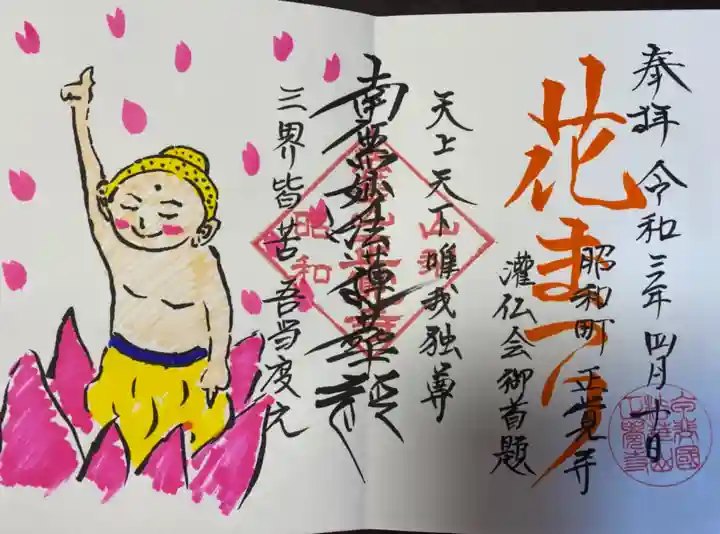 奉拝 令和三年 四月 十日
花まつり
昭和町 正覚寺
灌仏会御首題
天上天下唯我独尊
南無妙法蓮華経
三界皆苦 吾当度之
昭和